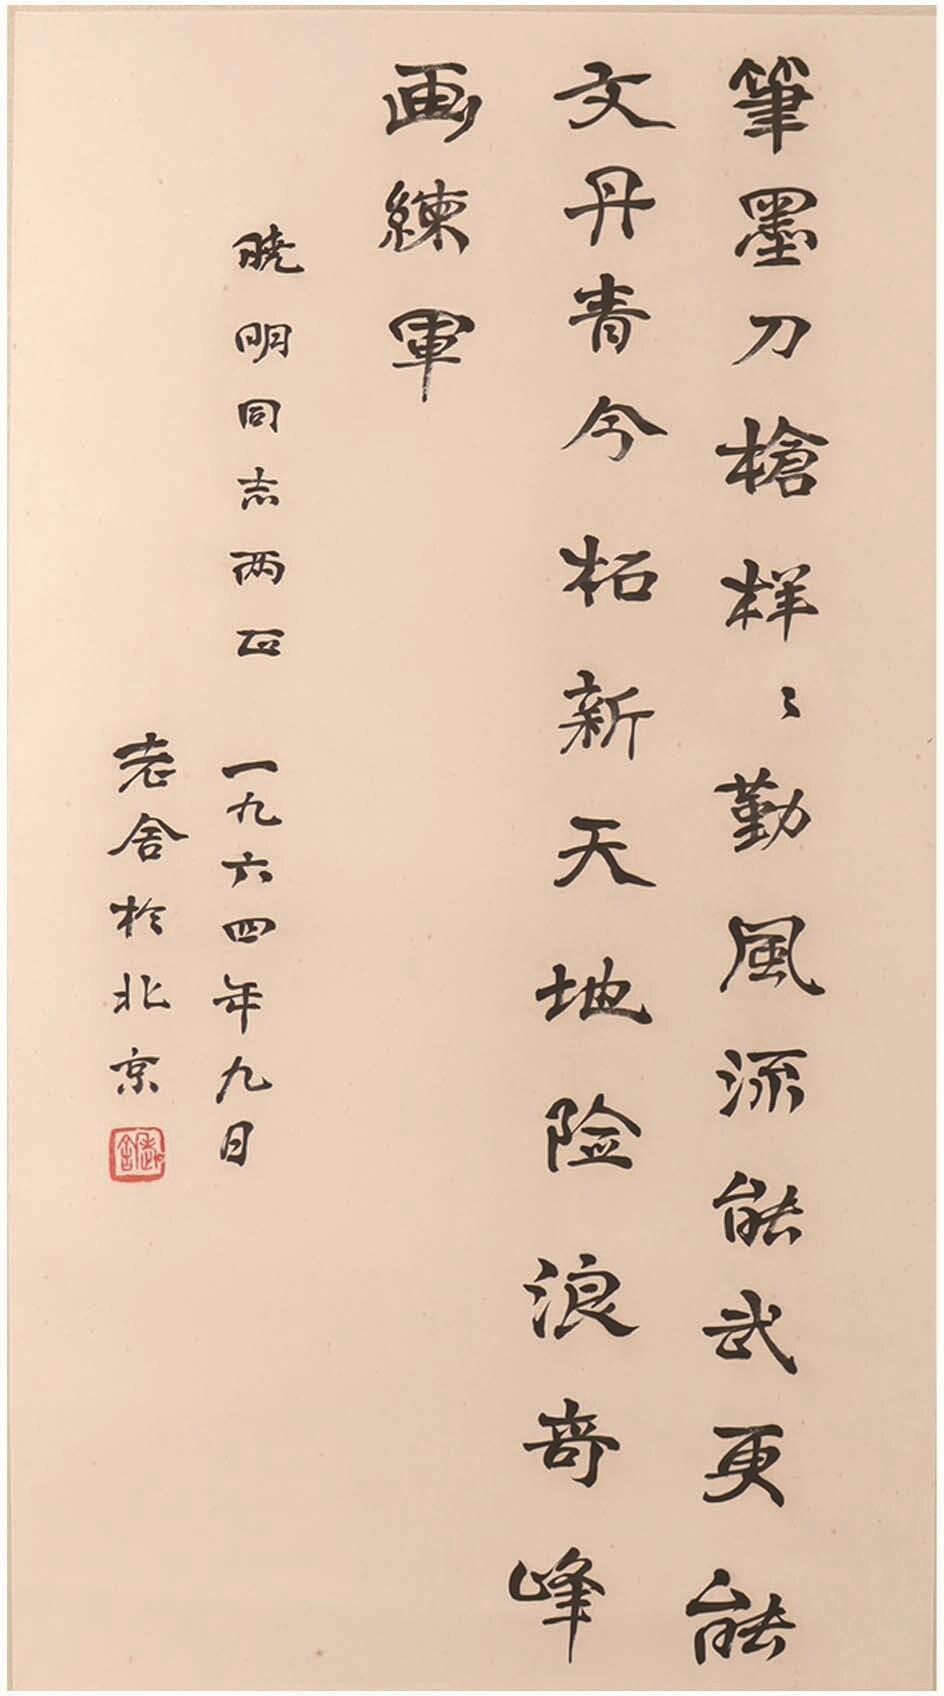 筆墨刀槍样々勤風流能武更能
文丹青今柘新天地险浪奇峰
画練軍
晓明同志两正
一九六四年九月
老舍於北京
老舍